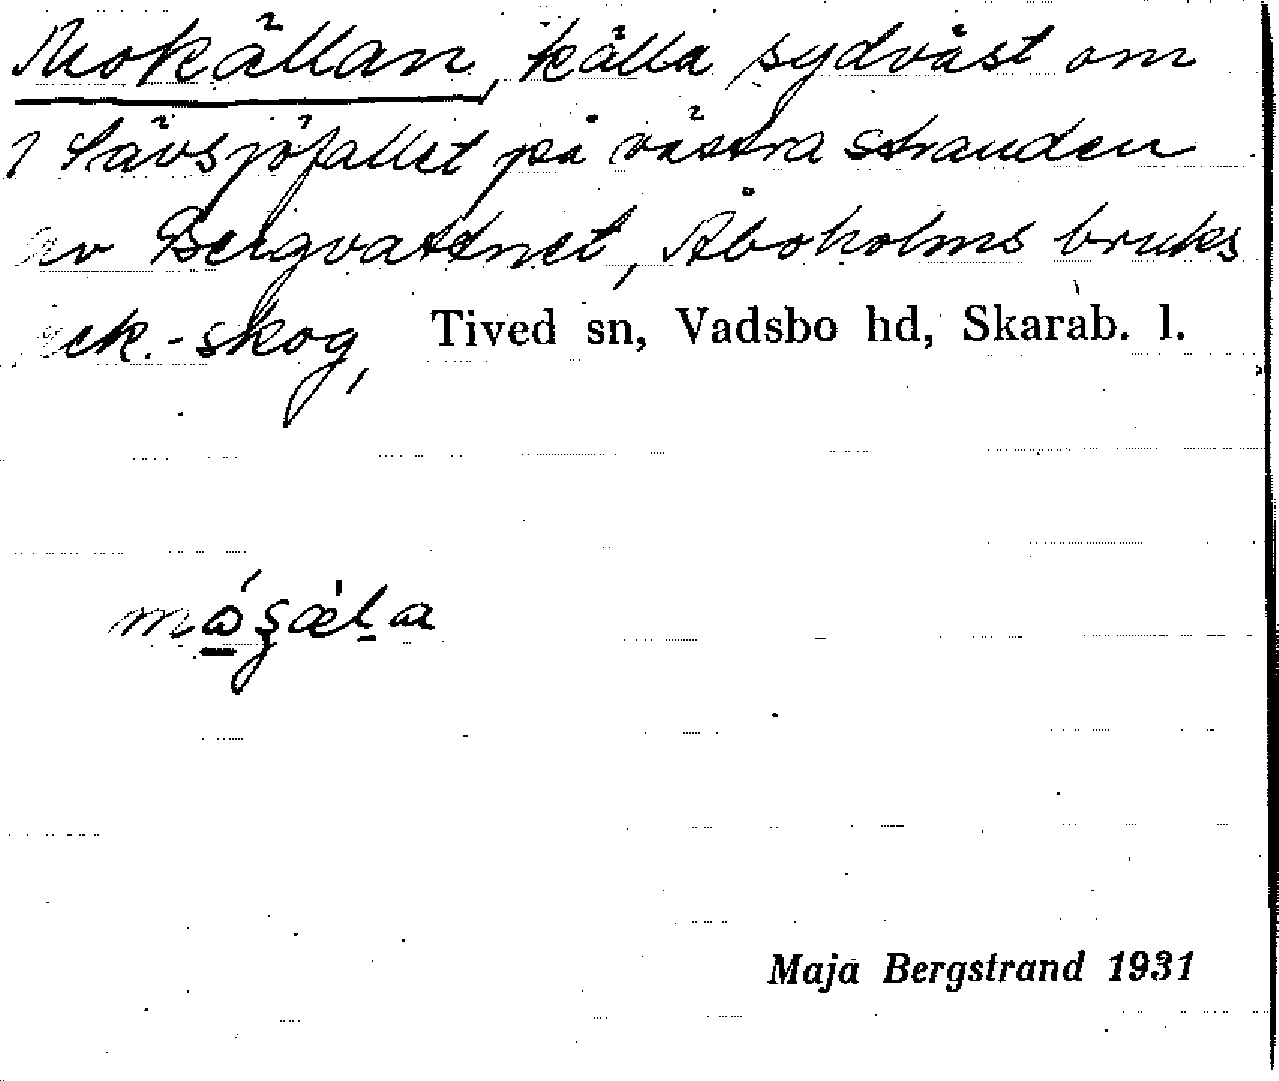 Mokällan, källa sydväst om
Sävsjöfallet på västra stranden
av Bergvattnet, Åboholms bruks
rek.-skog, Tived sn, Vadsbo hd, Skarab. l.
Maja Bergstrand 1931